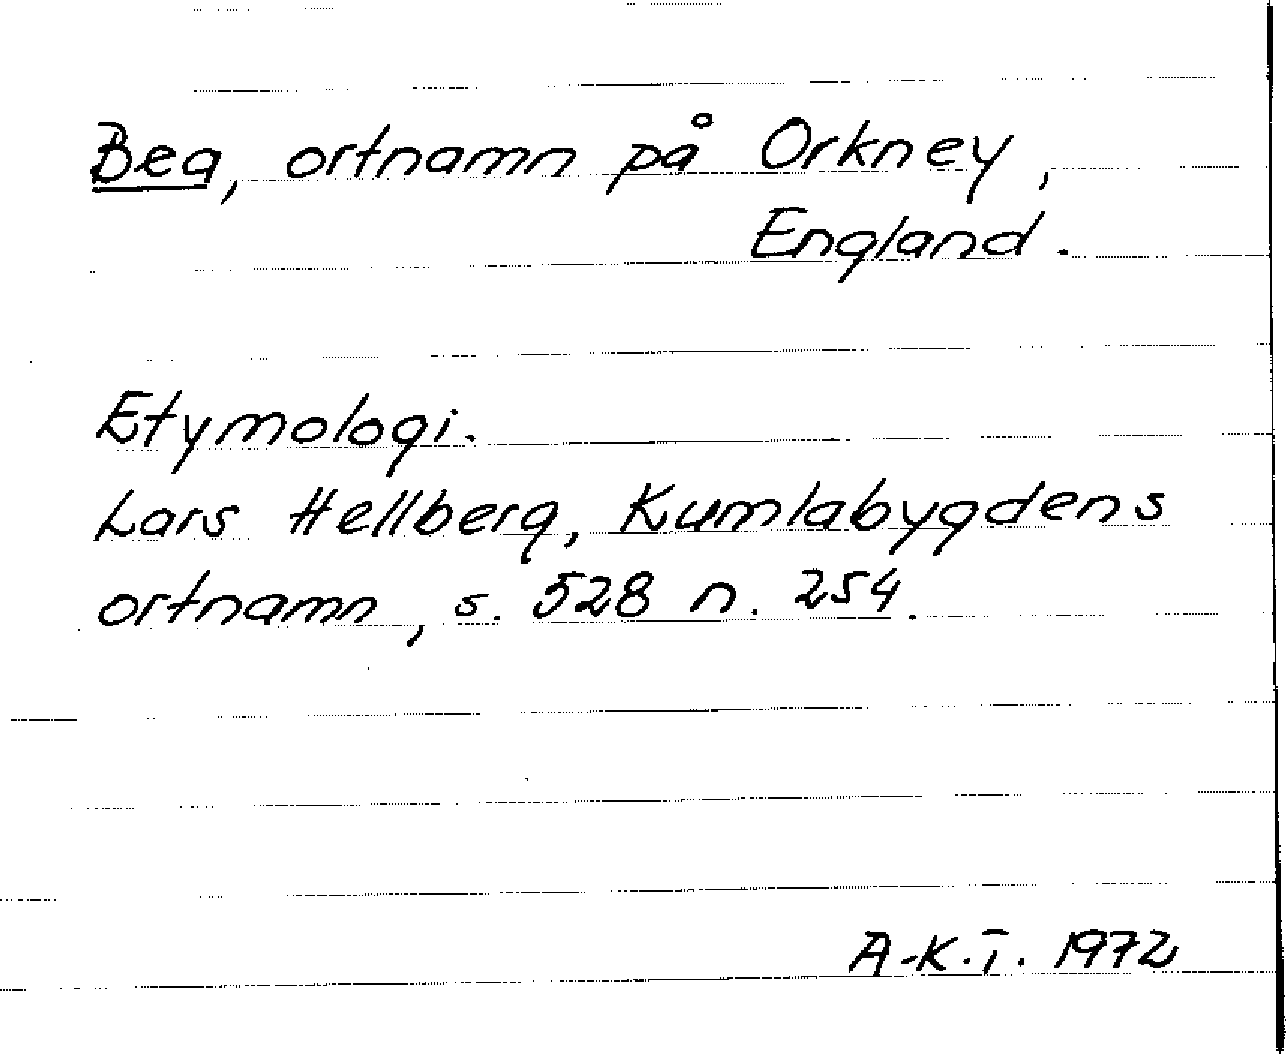 Bea, ortnamn på Orkney,
England.
Etymologi.
Lars Hellberg, Kumlabygdens
ortnamn, s. 528 n. 254.
A-K.T. 1972